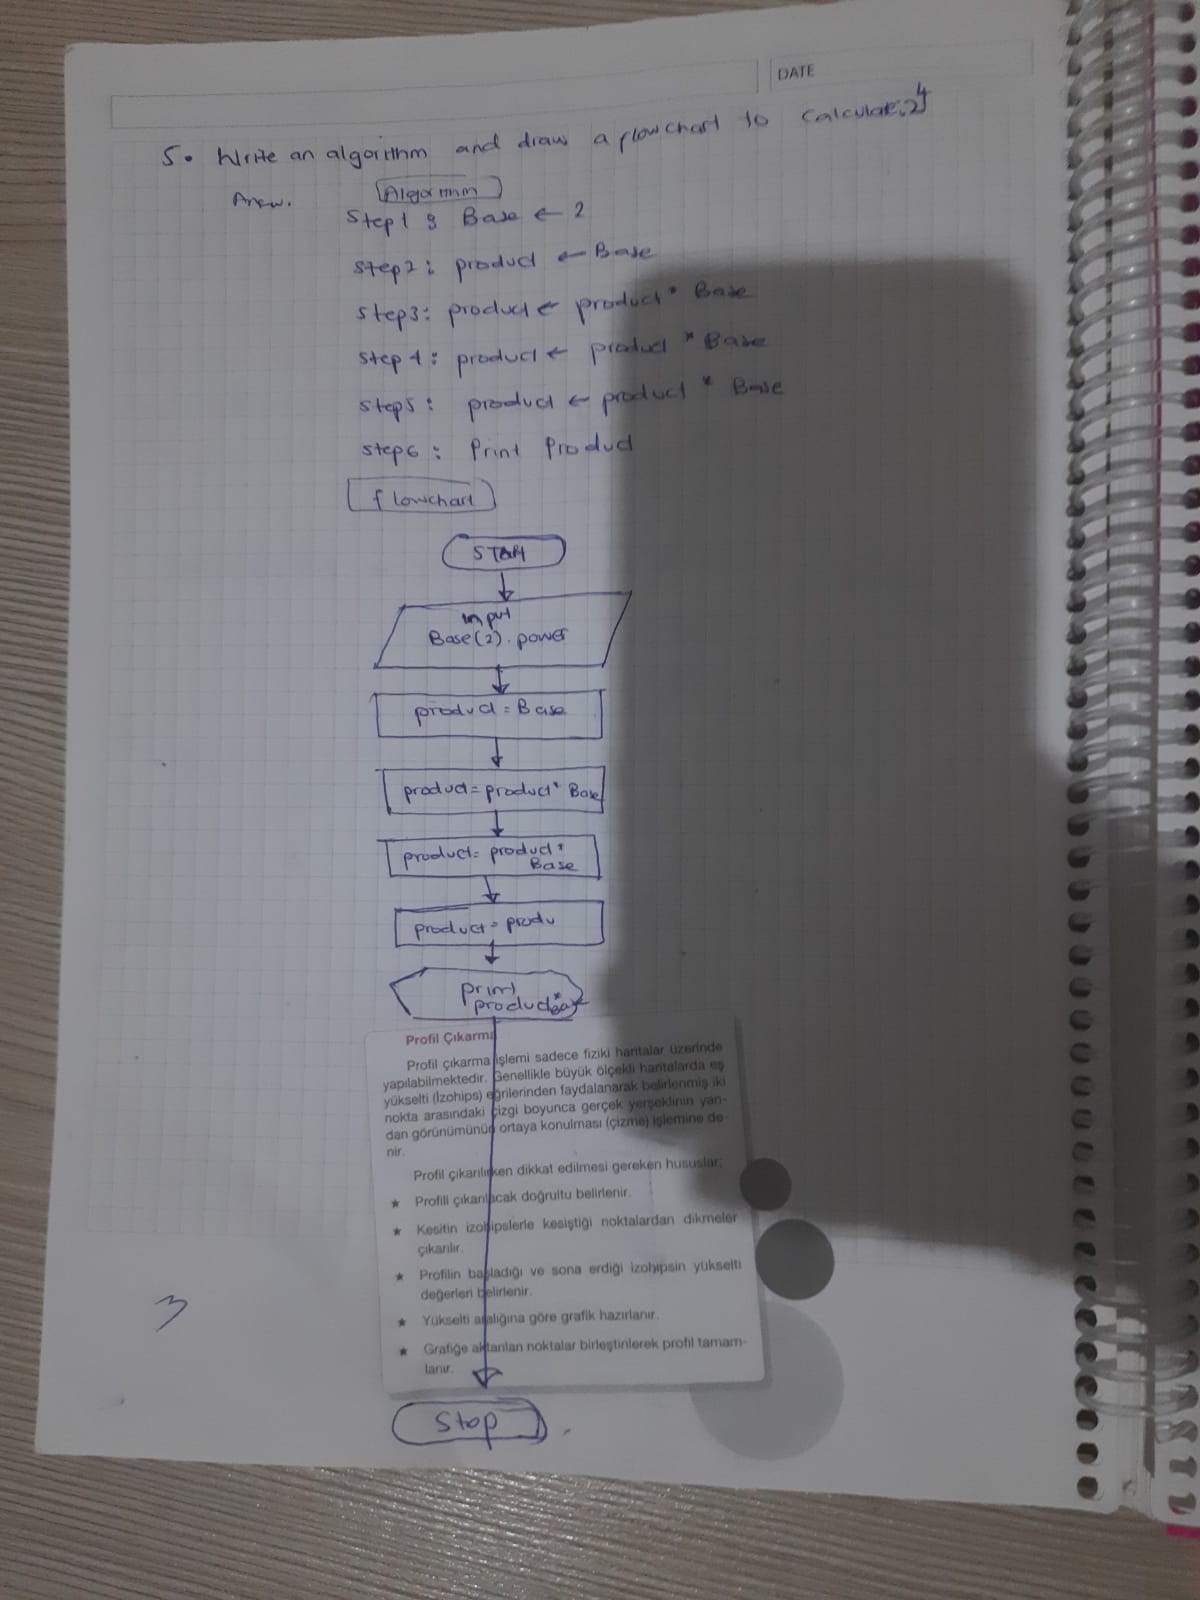 DATE
5. Write an algorithm and draw a flowchart to calculate 2⁴
Answ.
Algorithm
Step1 : Base ← 2
Step2: product ← Base
Step3: product ← product * Base
Step 4: product ← product * Base
Step5: product ← product * Base
Step6: Print Product
flowchart
START
input
Base(2). power
product = Base
product = product * Base
product = product *
Base
product = produ
print
product *
Profil Çıkarma
Profil çıkarma işlemi sadece fiziki haritalar üzerinde
yapılabilmektedir. Genellikle büyük ölçekli haritalarda eş
yükselti (İzohips) eğrilerinden faydalanarak belirlenmiş iki
nokta arasındaki çizgi boyunca gerçek yerşeklinin yan-
dan görünümünün ortaya konulması (çizme) işlemine de-
nir.
Profil çıkarılırken dikkat edilmesi gereken hususlar;
★ Profili çıkarılacak doğrultu belirlenir.
★ Kesitin izohipslerle kesiştiği noktalardan dikmeler
çıkarılır.
★ Profilin başladığı ve sona erdiği izohipsin yükselti
değerleri belirlenir.
★ Yükselti aralığına göre grafik hazırlanır.
★ Grafiğe aktarılan noktalar birleştirilerek profil tamam-
lanır.
3
Stop